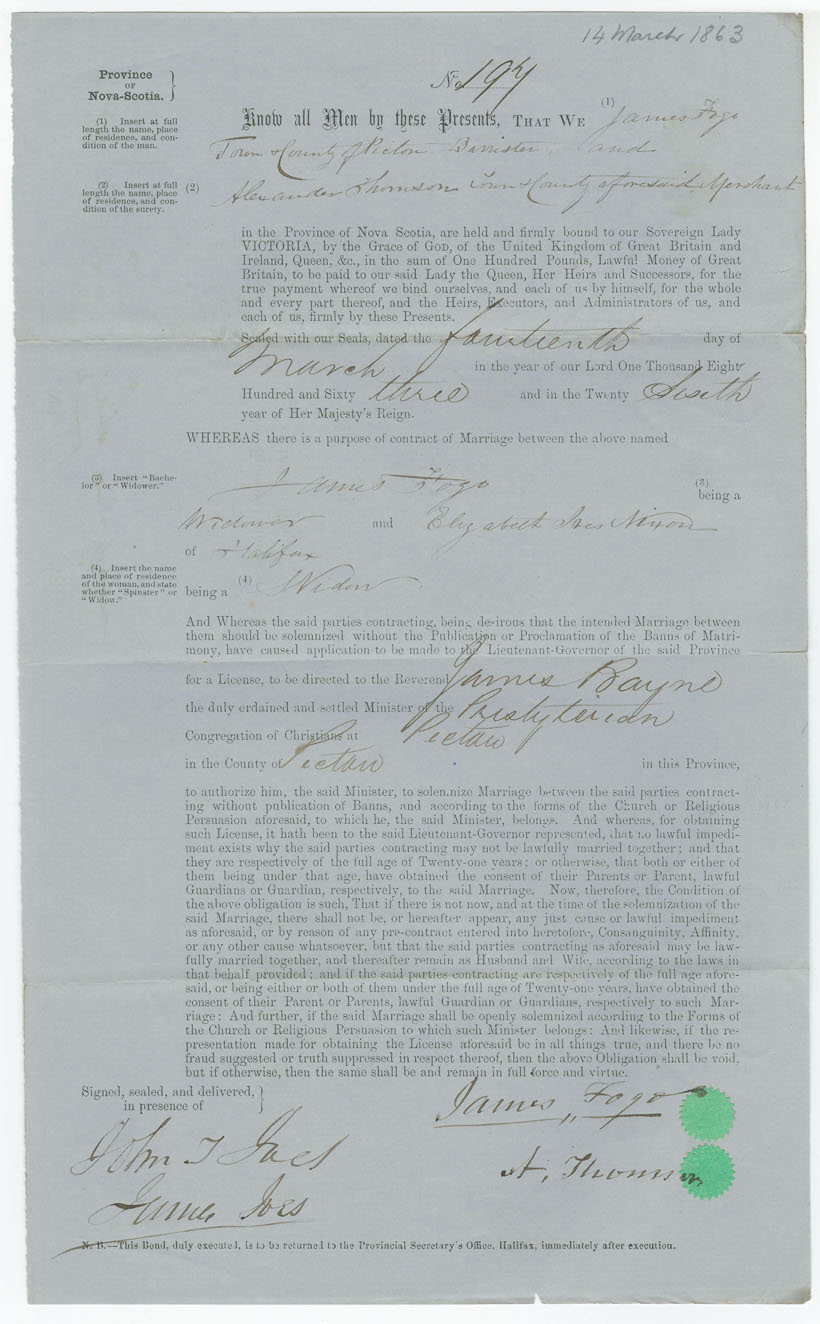 14 March 1863
Province
OF
Nova-Scotia.
No 197
(1) Insert at full
length the name, place
of residence, and con-
dition of the man.
Know all Men by these Presents, THAT WE (1) James Fogo
Town & County of Pictou Barrister and
(2) Insert at full
length the name, place
of residence, and con-
dition of the surety.
(2) Alexander Thomson Town & County aforesaid Merchant
in the Province of Nova Scotia, are held and firmly bound to our Sovereign Lady
VICTORIA, by the Grace of GOD, of the United Kingdom of Great Britain and
Ireland, Queen, &c., in the sum of One Hundred Pounds, Lawful Money of Great
Britain, to be paid to our said Lady the Queen, Her Heirs and Successors, for the
true payment whereof we bind ourselves, and each of us by himself, for the whole
and every part thereof, and the Heirs, Executors, and Administrators of us, and
each of us, firmly by these Presents.
Sealed with our Seals, dated the fourteenth day of
March in the year of our Lord One Thousand Eight
Hundred and Sixty three and in the Twenty Sixth
year of Her Majesty's Reign.
WHEREAS there is a purpose of contract of Marriage between the above named
(3) Insert "Bache-
lor" or "Widower."
James Fogo (3) being a
Widower and Elizabeth Ives Nixon
of Halifax
(4) Insert the name
and place of residence
of the woman, and state
whether "Spinster" or
"Widow."
being a (4) Widow
And Whereas the said parties contracting, being desirous that the intended Marriage between
them should be solemnized without the Publication or Proclamation of the Banns of Matri-
mony, have caused application to be made to the Lieutenant-Governor of the said Province
for a License, to be directed to the Reverend James Bayne
the duly ordained and settled Minister of the Presbyterian
Congregation of Christians at Pictou
in the County of Pictou in this Province,
to authorize him, the said Minister, to solemnize Marriage between the said parties contract-
ing without publication of Banns, and according to the forms of the Church or Religious
Persuasion aforesaid, to which he, the said Minister, belongs. And whereas, for obtaining
such License, it hath been to the said Lieutenant-Governor represented, that no lawful impedi-
ment exists why the said parties contracting may not be lawfully married together; and that
they are respectively of the full age of Twenty-one years; or otherwise, that both or either of
them being under that age, have obtained the consent of their Parents or Parent, lawful
Guardians or Guardian, respectively, to the said Marriage. Now, therefore, the Condition of
the above obligation is such, That if there is not now, and at the time of the solemnization of the
said Marriage, there shall not be, or hereafter appear, any just cause or lawful impediment
as aforesaid, or by reason of any pre-contract entered into heretofore, Consanguinity, Affinity,
or any other cause whatsoever, but that the said parties contracting as aforesaid may be law-
fully married together, and thereafter remain as Husband and Wife, according to the laws in
that behalf provided; and if the said parties contracting are respectively of the full age afore-
said, or being either or both of them under the full age of Twenty-one years, have obtained the
consent of their Parent or Parents, lawful Guardian or Guardians, respectively to such Mar-
riage: And further, if the said Marriage shall be openly solemnized according to the Forms of
the Church or Religious Persuasion to which such Minister belongs: And likewise, if the re-
presentation made for obtaining the License aforesaid be in all things true, and there be no
fraud suggested or truth suppressed in respect thereof, then the above Obligation shall be void,
but if otherwise, then the same shall be and remain in full force and virtue.
Signed, sealed, and delivered,
in presence of
James Fogo
John T Ives
A. Thomson
James Ives
N. B.—This Bond, duly executed, is to be returned to the Provincial Secretary's Office, Halifax, immediately after execution.